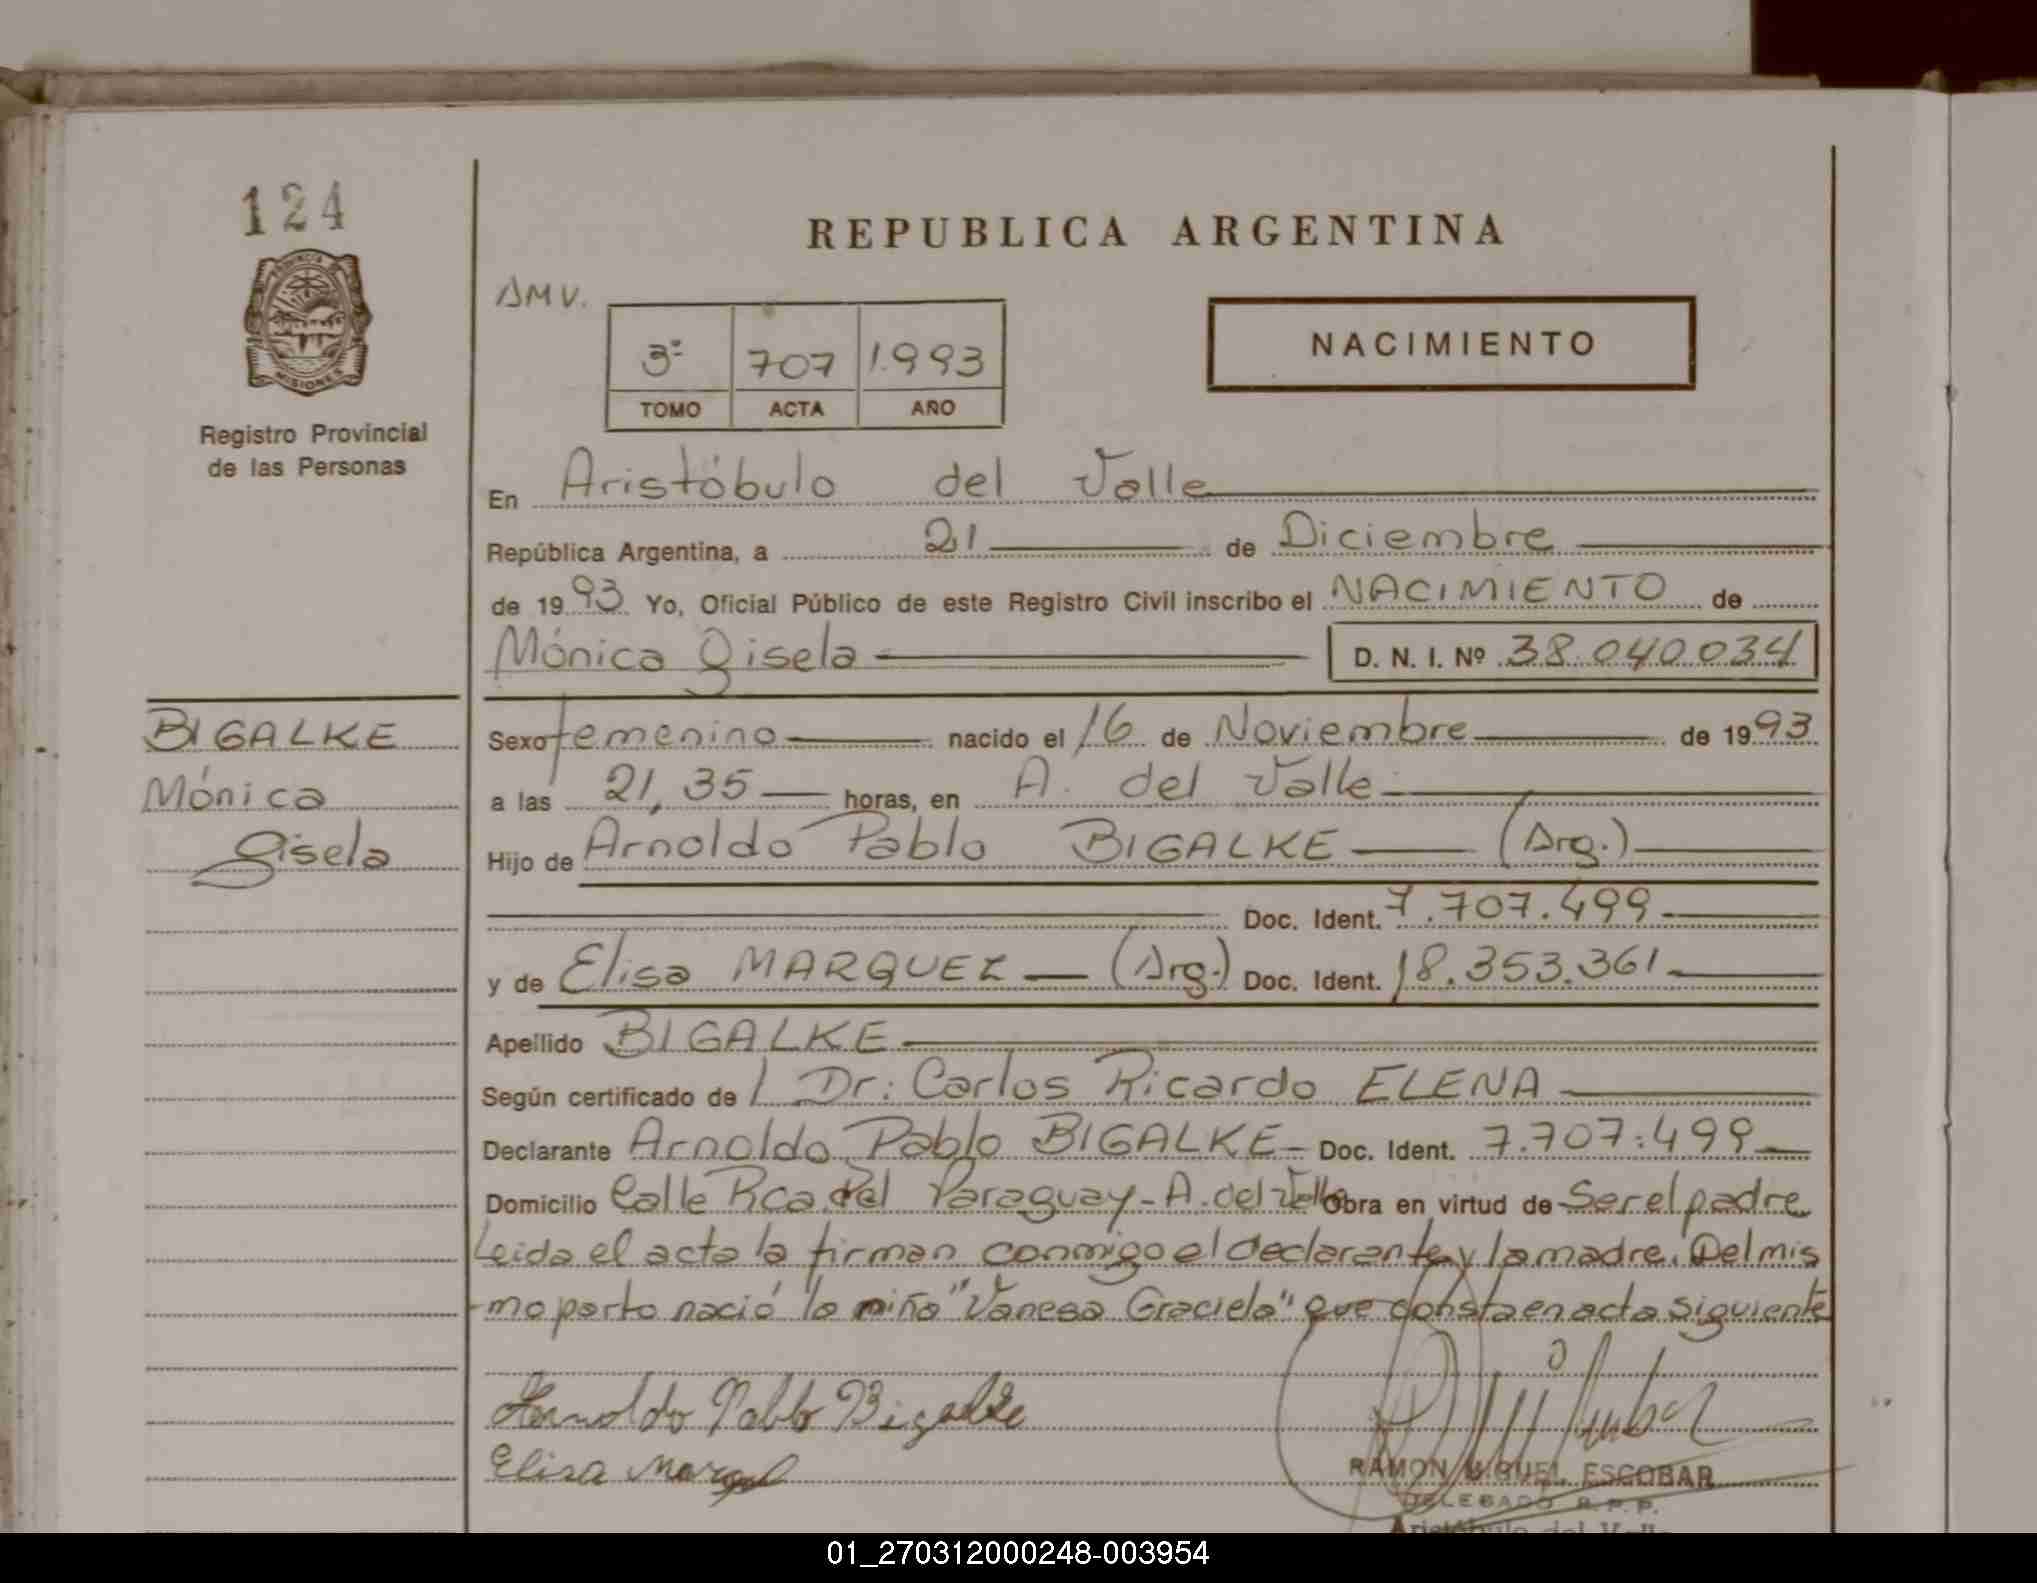 124
PROVINCIA DE
MISIONES
Registro Provincial
de las Personas
BIGALKE
Mónica
Gisela
REPUBLICA ARGENTINA
AMV.
3º 707 1.993
TOMO ACTA AÑO
NACIMIENTO
En Aristóbulo del Valle
República Argentina, a 21 de Diciembre
de 1993 Yo, Oficial Público de este Registro Civil inscribo el NACIMIENTO de
Mónica Gisela D. N. I. Nº 38.040.034
Sexo femenino nacido el 16 de Noviembre de 1993
a las 21,35 horas, en A. del Valle
Hijo de Arnoldo Pablo BIGALKE (Arg.)
Doc. Ident. 7.707.499
y de Elisa MARQUEZ (Arg.) Doc. Ident. 18.353.361
Apellido BIGALKE
Según certificado de Dr: Carlos Ricardo ELENA
Declarante Arnoldo Pablo BIGALKE Doc. Ident. 7.707.499
Domicilio Calle Rca. del Paraguay - A. del Valle Obra en virtud de Ser el padre
Leida el acta la firman conmigo el declarante y la madre. Del mis
mo parto nació la niña "Vanesa Graciela" que consta en acta siguiente
Arnoldo Pablo Bigalke
Elisa
RAMON MIGUEL ESCOBAR
DELEGADO R.P.P.
Aristóbulo del Valle
01_270312000248-003954